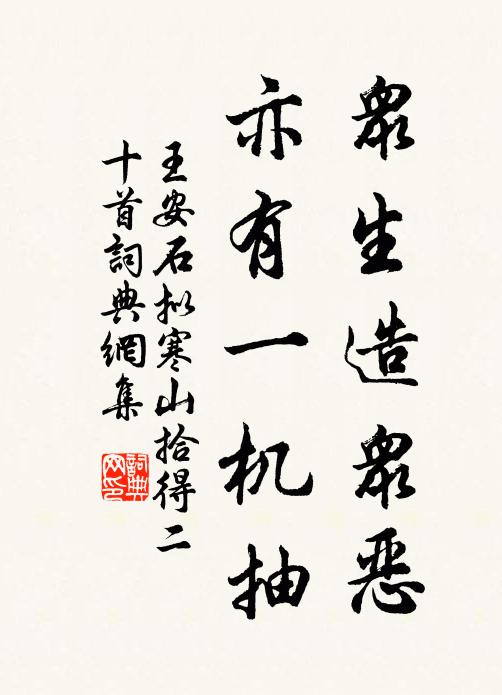 眾生造眾恶
亦有一机抽
王安石拟寒山拾得二
十首詞典網集
詞典
网印